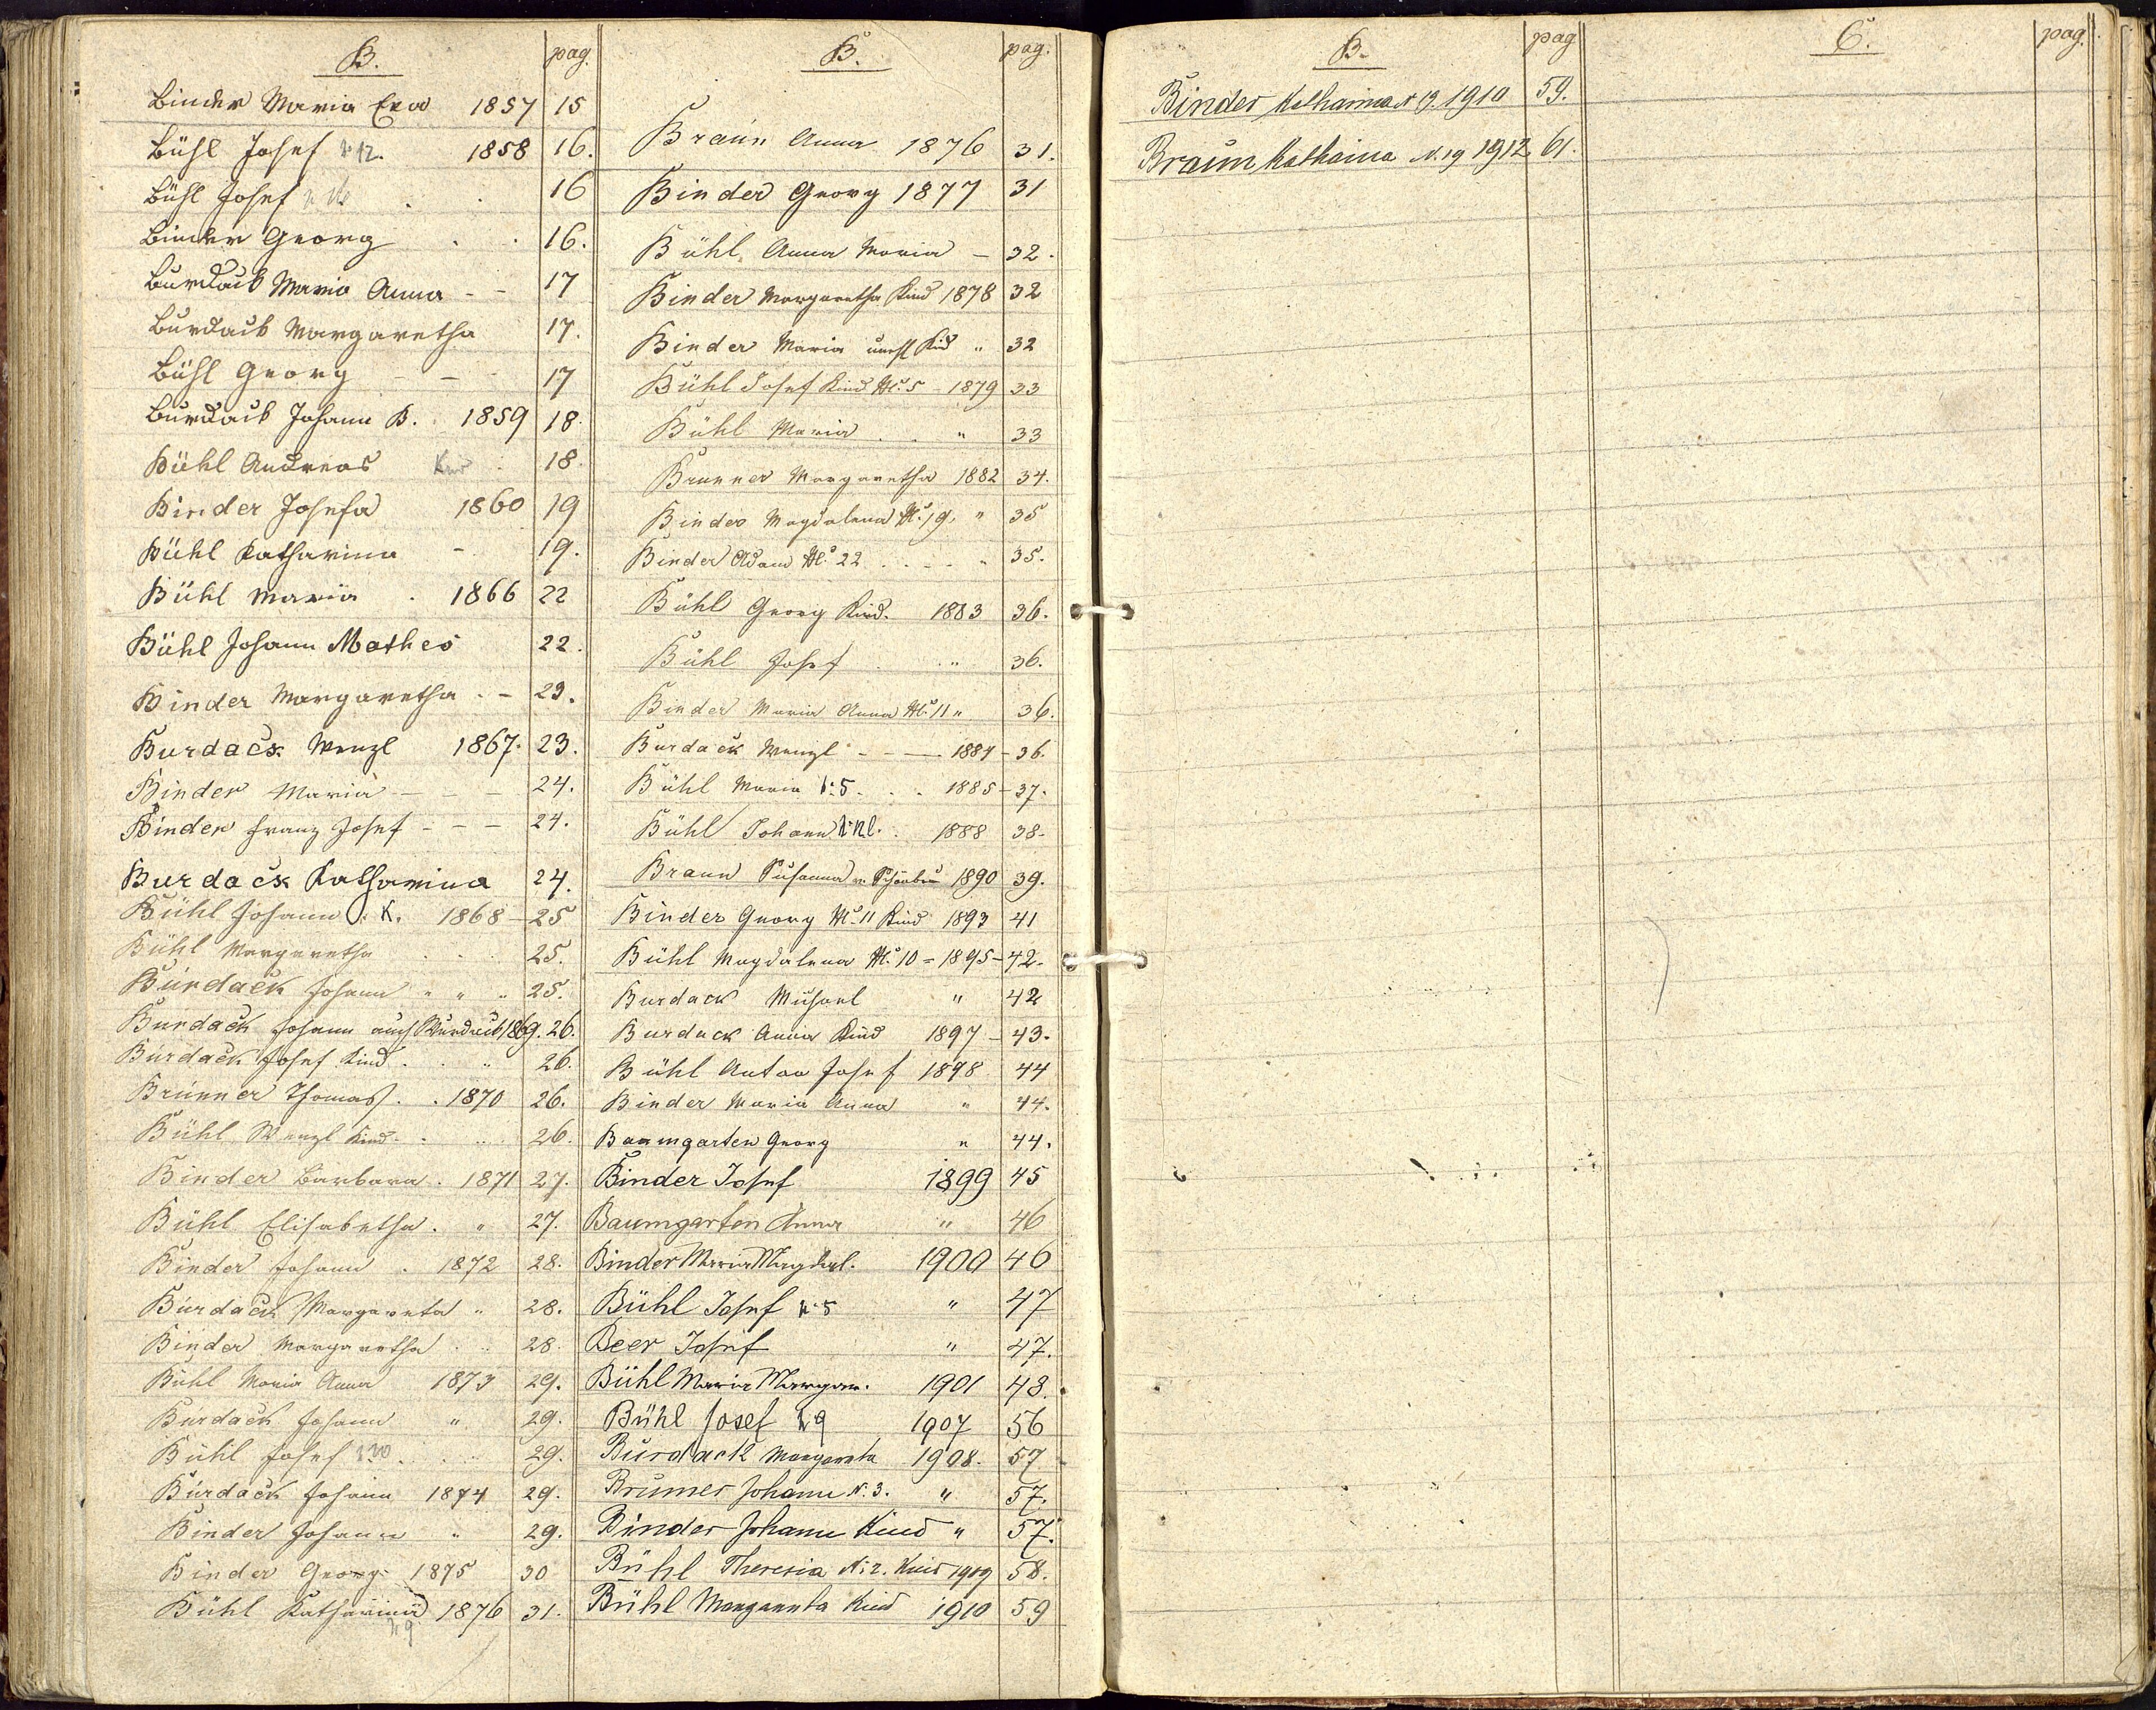 B. pag.
Binder Maria Eva 1857 15
Bühl Josef N 12. 1858 16.
Bühl Josef N 16 . . 16
Binder Georg . . 16.
Burdack Maria Anna - - 17
Burdack Margaretha 17.
Bühl Georg - - - 17
Burdack Johann B. 1859 18.
Bühl Andreas 18.
Binder Josefa 1860 19
Bühl Katharina - 19.
Bühl Maria . 1866 22
Bühl Johann Mathes 22.
Binder Margaretha . - 23.
Burdack Wenzl 1867. 23.
Binder Maria - - - 24.
Binder Franz Josef - - - 24.
Burdack Katharina 24.
Bühl Johann . K. 1868 - 25
Bühl Margaretha . . . 25.
Burdack Johann " " " 25.
Burdack Johann auch Wurdack 1869. 26.
Burdack Josef Kind . . " 26.
Brunner Thomas . . 1870 26.
Bühl Wenzl Kind . . " 26.
Binder Barbara . 1871 27.
Bühl Elisabetha . " 27.
Binder Johann . 1872 28.
Burdack Margareta " 28.
Binder Margaretha . " 28.
Bühl Maria Anna 1873 29.
Burdack Johann " 29.
Bühl Josef . . . 29.
Burdack Johann 1874 29.
Binder Johann " 29.
Binder Georg 1875 30
Bühl Katharina 1876 31.
N 9
B. pag.
Braun Anna 1876 31.
Binder Georg 1877 31
Bühl Anna Maria - 32.
Binder Margaretha Kind 1878 32
Binder Maria unehl Kind " 32
Bühl Josef Kind N: 5 1879 33
Bühl Maria . . " 33
Brunner Margaretha 1882 34.
Binder Magdalena N: 19. " 35
Binder Adam N: 22 . . - - " 35.
Bühl Georg Kind. 1883 36.
Bühl Josef . . " 36.
Binder Maria Anna N: 11 " 36.
Burdack Wenzl - - — 1884 - 36.
Bühl Maria N: 5 . . . 1885 - 37.
Bühl Johann . . 1888 38.
Braun Susanna 1890 39.
Binder Georg N: 11 Kind 1893 41
Bühl Magdalena N: 10 = 1895 - 42.
Burdack Michael " 42
Burdack Anna Kind 1897 - 43.
Bühl Anton Josef 1898 44
Binder Maria Anna " 44.
Baumgarten Georg " 44.
Binder Josef 1899 45
Baumgarten Anna " 46
Binder Maria Magdal. 1900 46
Bühl Josef N: 5 " 47
Beer Josef " 47.
Bühl Maria Margar. 1901 48.
Bühl Josef N 9 1907 56
Burdack Margareta 1908. 57
Brunner Johann N. 3. " 57.
Binder Johann Kind " 57.
Bühl Theresia N: 2. Kind 1909 58.
Bühl Margareta Kind 1910 59
B. pag
Binder Katharina N 19. 1910 59.
Braun Katharina N. 19 1912 61.
C. pag.